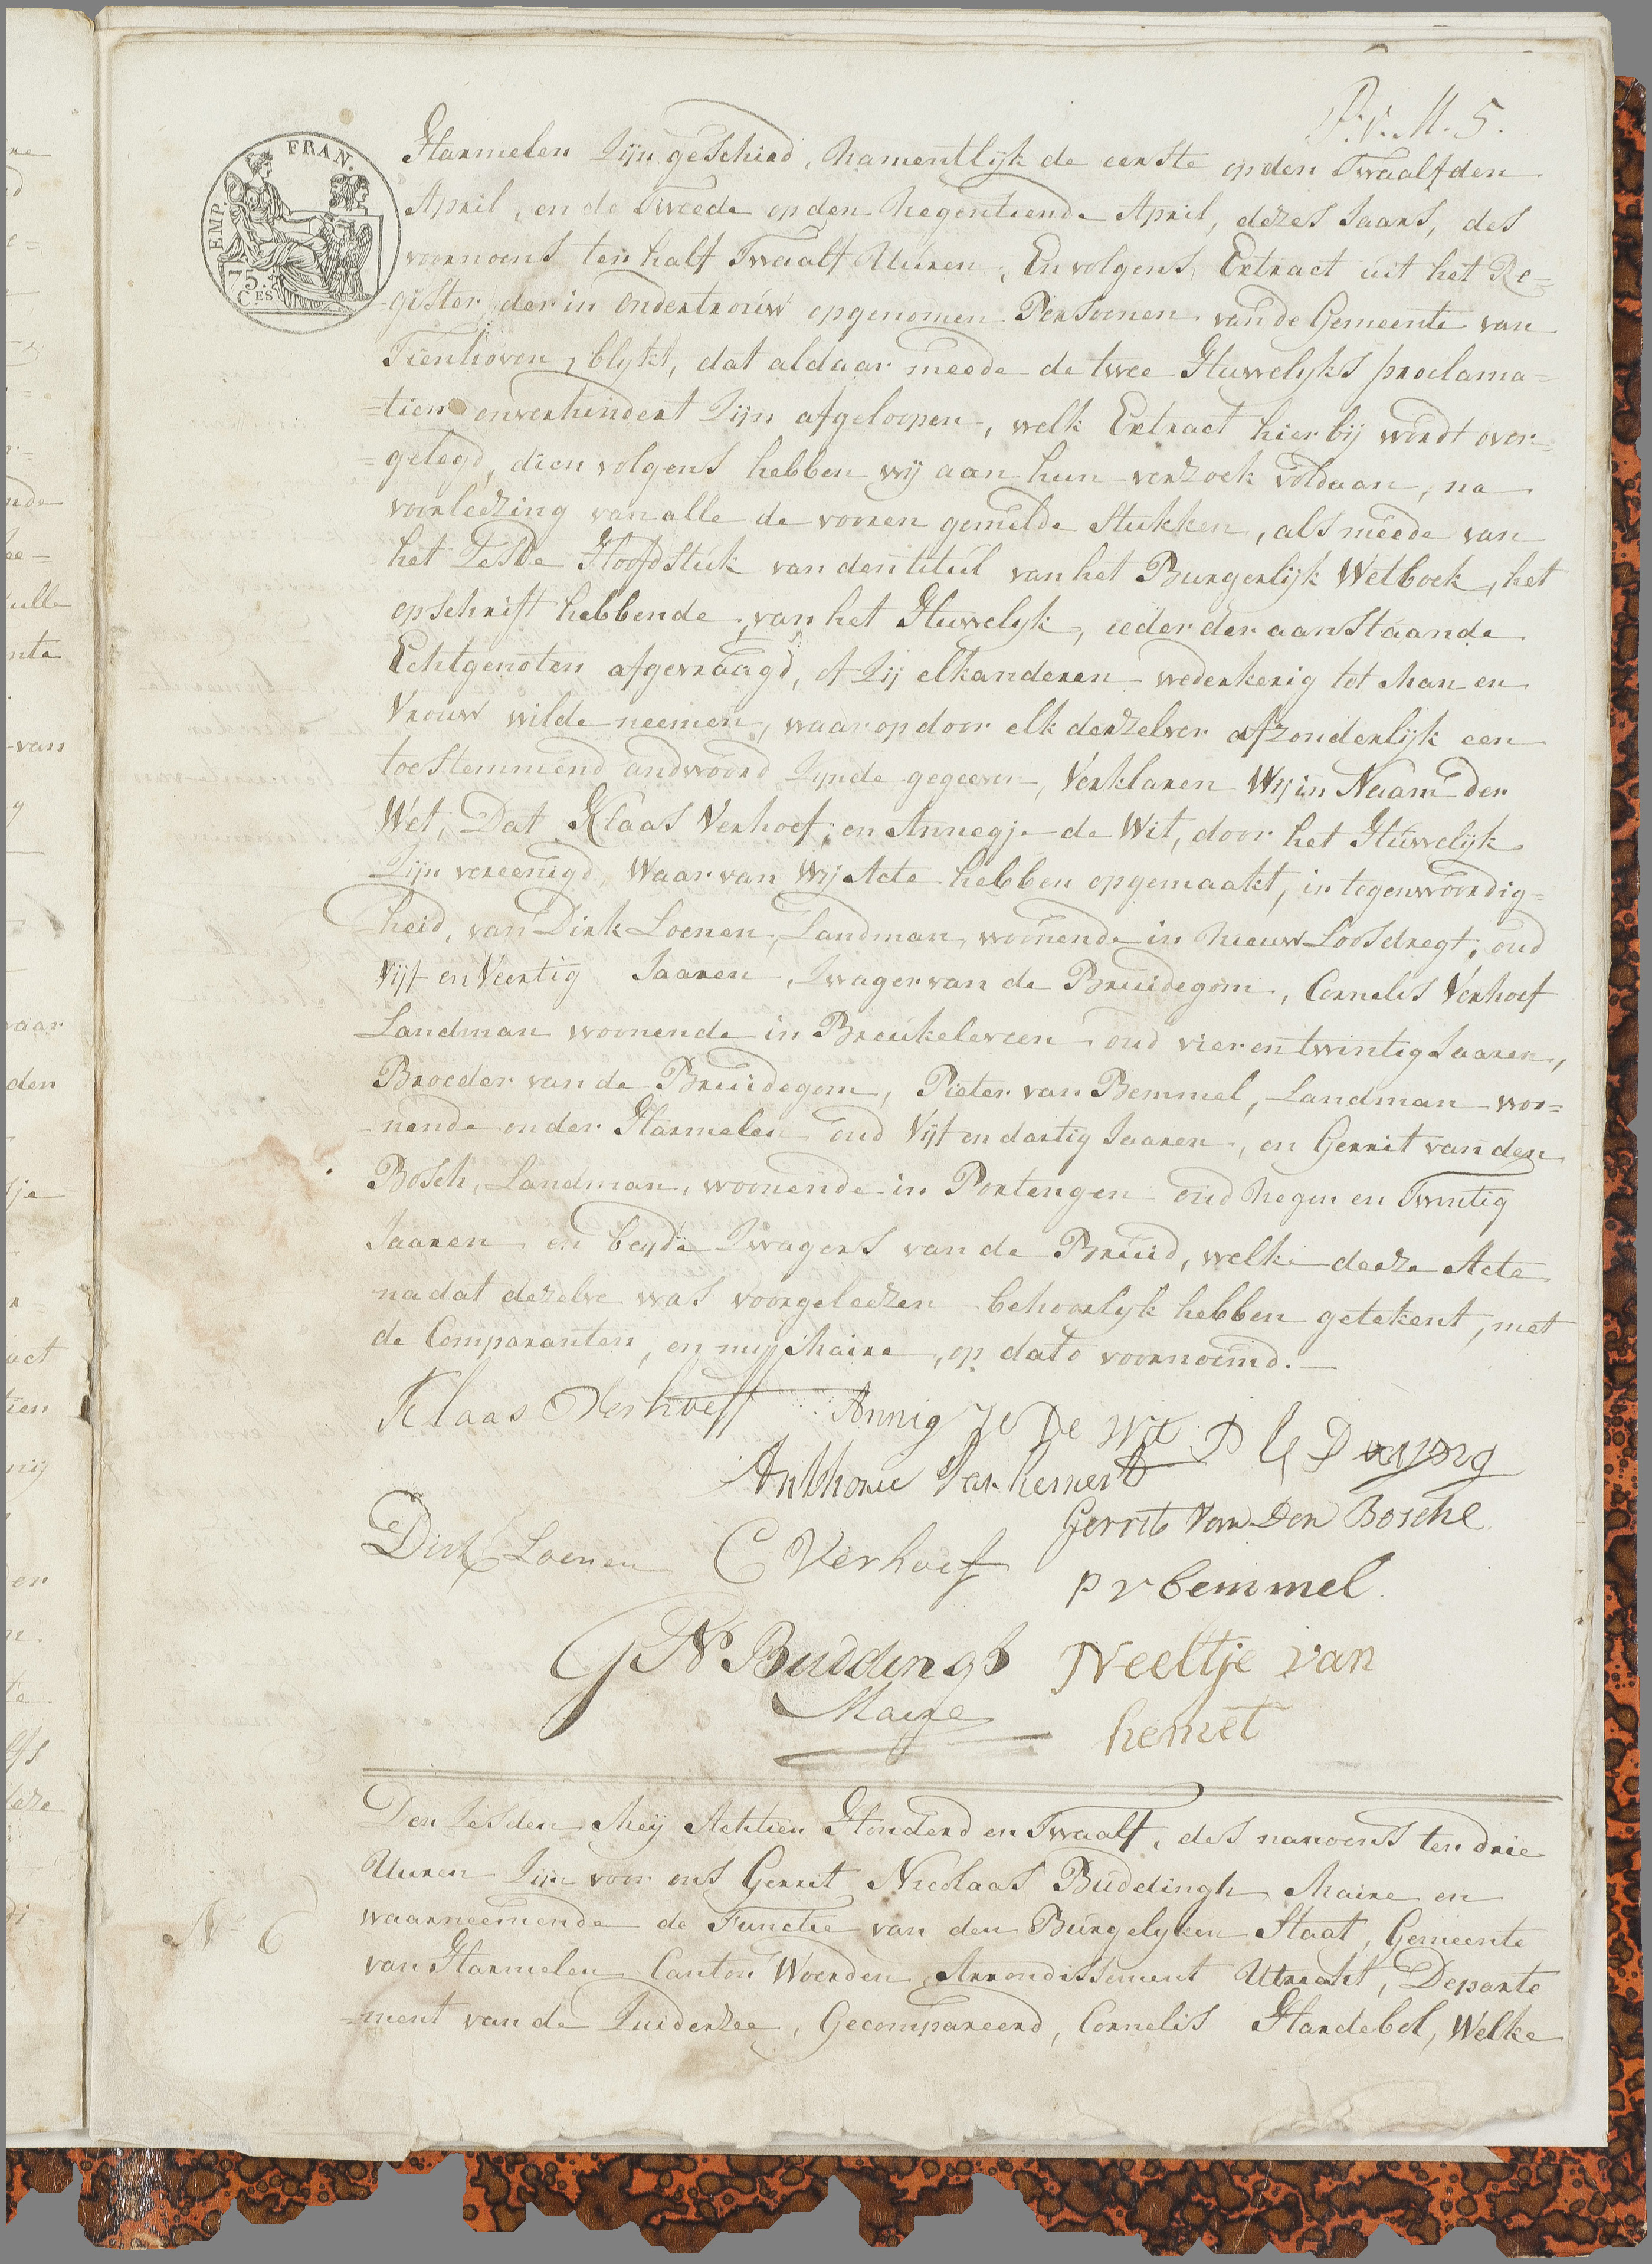 P. v. M. 5.
EMP. FRAN.
75. CES
Harmelen Zijn geschied, Namentlijk de eerste op den Twaalfden
April, en de Tweede op den Negentiende April, dezes Jaars, des
voornoens ten half Twaalf Uuren, En volgens Extract uit het Re=
gister der in Ondertrouw opgenomen Persoonen van de Gemeente van
Tienhoven, blykt, dat aldaar meede de twee Huwelyks proclama=
=tien onverhindert Zijn afgeloopen, welk Extract hier bij wordt over=
=gelegd, dien volgens hebben wij aan hun verzoek voldaan, na
voorleezing van alle de vooren gemelde Stukken, als meede van
het Zesde Hoofdstuk van den titul van het Burgerlijk Wetboek, het
opschrift hebbende, van het Huwelyk, ieder der aanstaande
Echtgenoten afgevraagd, of Zij elkanderen wederkerig tot Man en
Vrouw wilde neemen, waar op door elk derzelver afzonderlijk een
toestemmend andwoord Zynde gegeeven, Verklaren Wij in Naam der
Wet, Dat Klaas Verhoef, en Annegje de Wit, door het Huwelijk
Zijn vereenigd, Waar van Wij Acte hebben opgemaakt, in tegenwoordig=
heid, van Dirk Loenen, Landman, woonende in Nieuw Loosdregt, oud
Vijf en Veertig Jaaren, Zwager van de Bruidegom, Cornelis Verhoef
Landman woonende in Breukeleveen oud vier en twintig Jaaren,
Broeder van de Bruidegom, Pieter van Bemmel, Landman woo=
=nende onder Harmelen oud Vijf en dartig Jaaren, en Gerrit van den
Bosch, Landman, woonende in Portengen oud Negen en Twintig
Jaaren en beyde Zwagers van de Bruid, welke deeze Acte
na dat dezelve was voorgeleezen behoorlyk hebben getekent, met
de Comparanten, en mij Maire, op dato voornoemd.
Klaas Verhoeff Annig Je De Wit
Anthonie Van hemert
Gerrit Van Den Bosche
Dirk Loenen C Verhoef
p v bemmel
G N Buddingh Neeltje van
Maire hemet
Den Zesden Meij Achtien Honderd en Twaalf, des namoens ten drie
Uuren Zijn voor ons Gerrit Nicolaas Buddingh Maire en
No 6
waarneemende de Functie van den Burgelyken Staat, Gemeente
van Harmelen Canton Woerden Arrondissement Utrecht, Departe
=ment van de Zuiderzee, Gecompareerd, Cornelis Hardebol, Welke